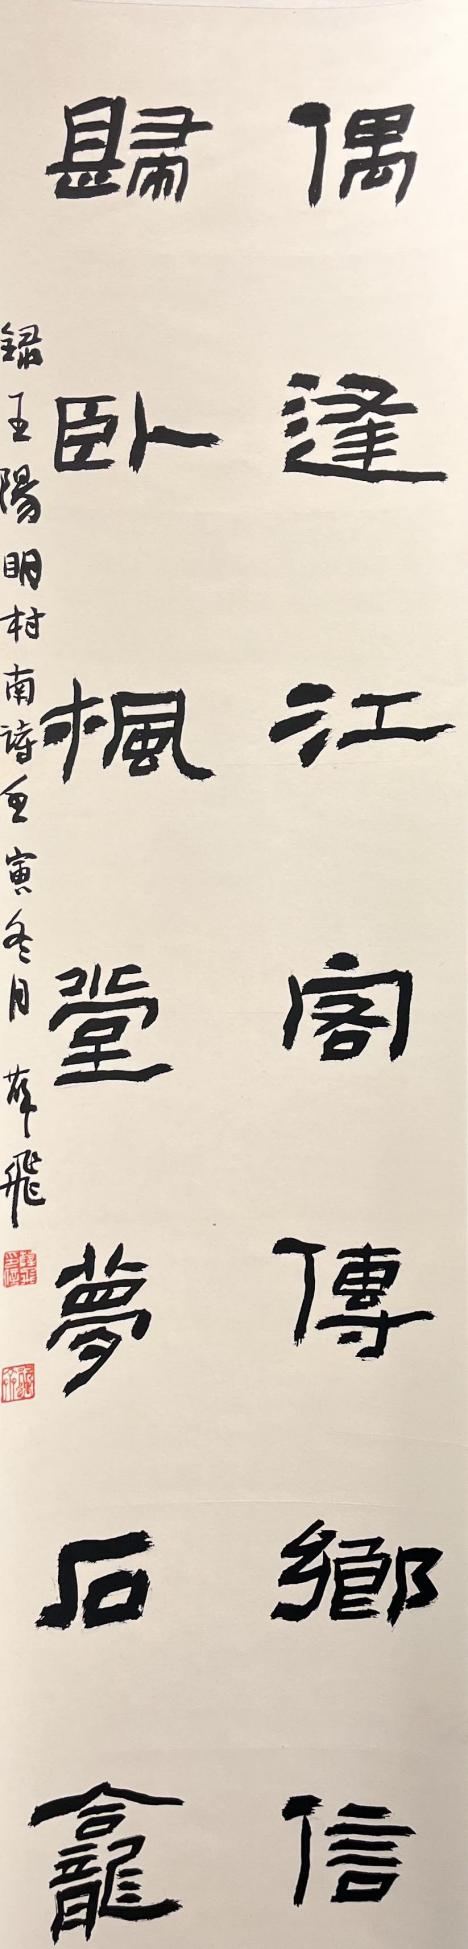 偶逢江客傳鄉信
歸臥楓堂夢石龕
錄王陽明村南詩壬寅冬月薛飛